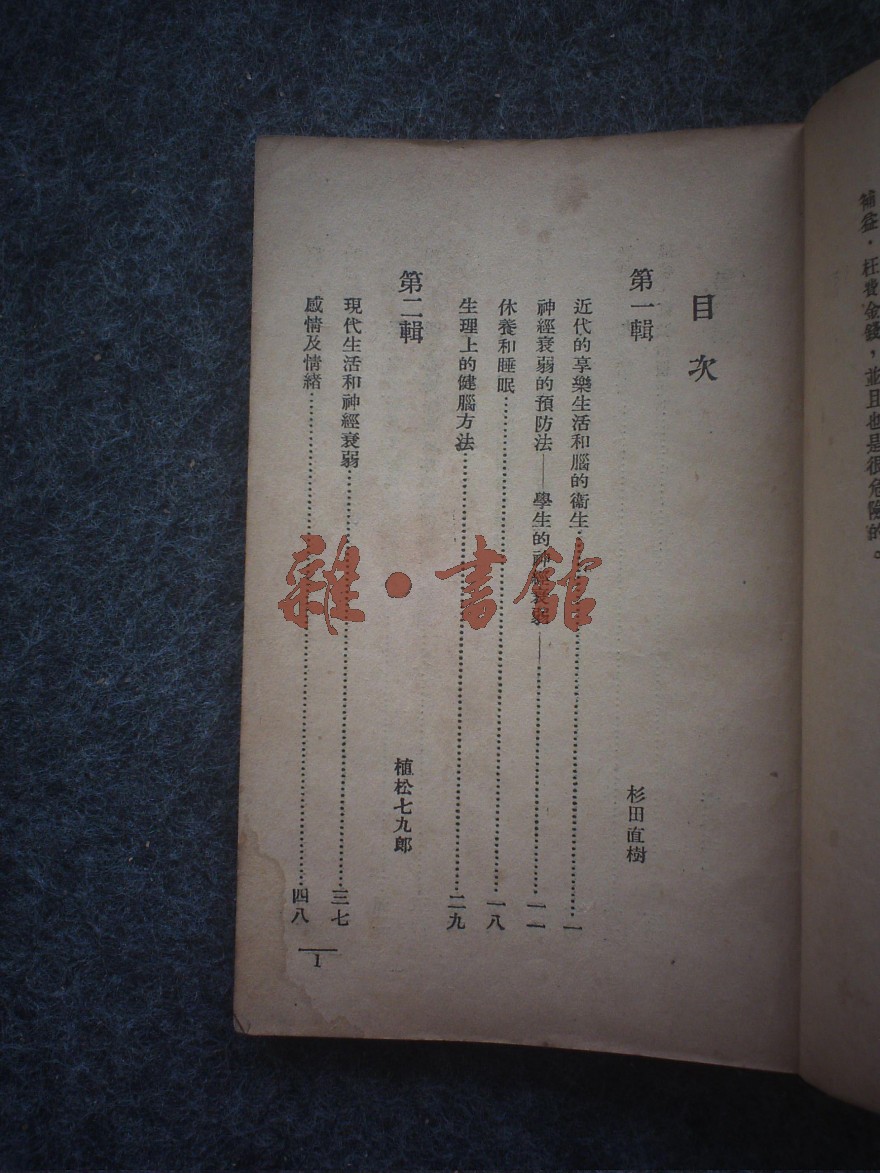 補益，枉費金錢，並且也是很危險的。
目次
第一輯 杉田直樹
近代的享樂生活和腦的衞生……一
神經衰弱的預防法——學生的神經衰弱——……一一
休養和睡眠……一八
生理上的健腦方法……二九
第二輯 植松七九郎
現代生活和神經衰弱……三七
感情及情緒……四八
1
雜·書館